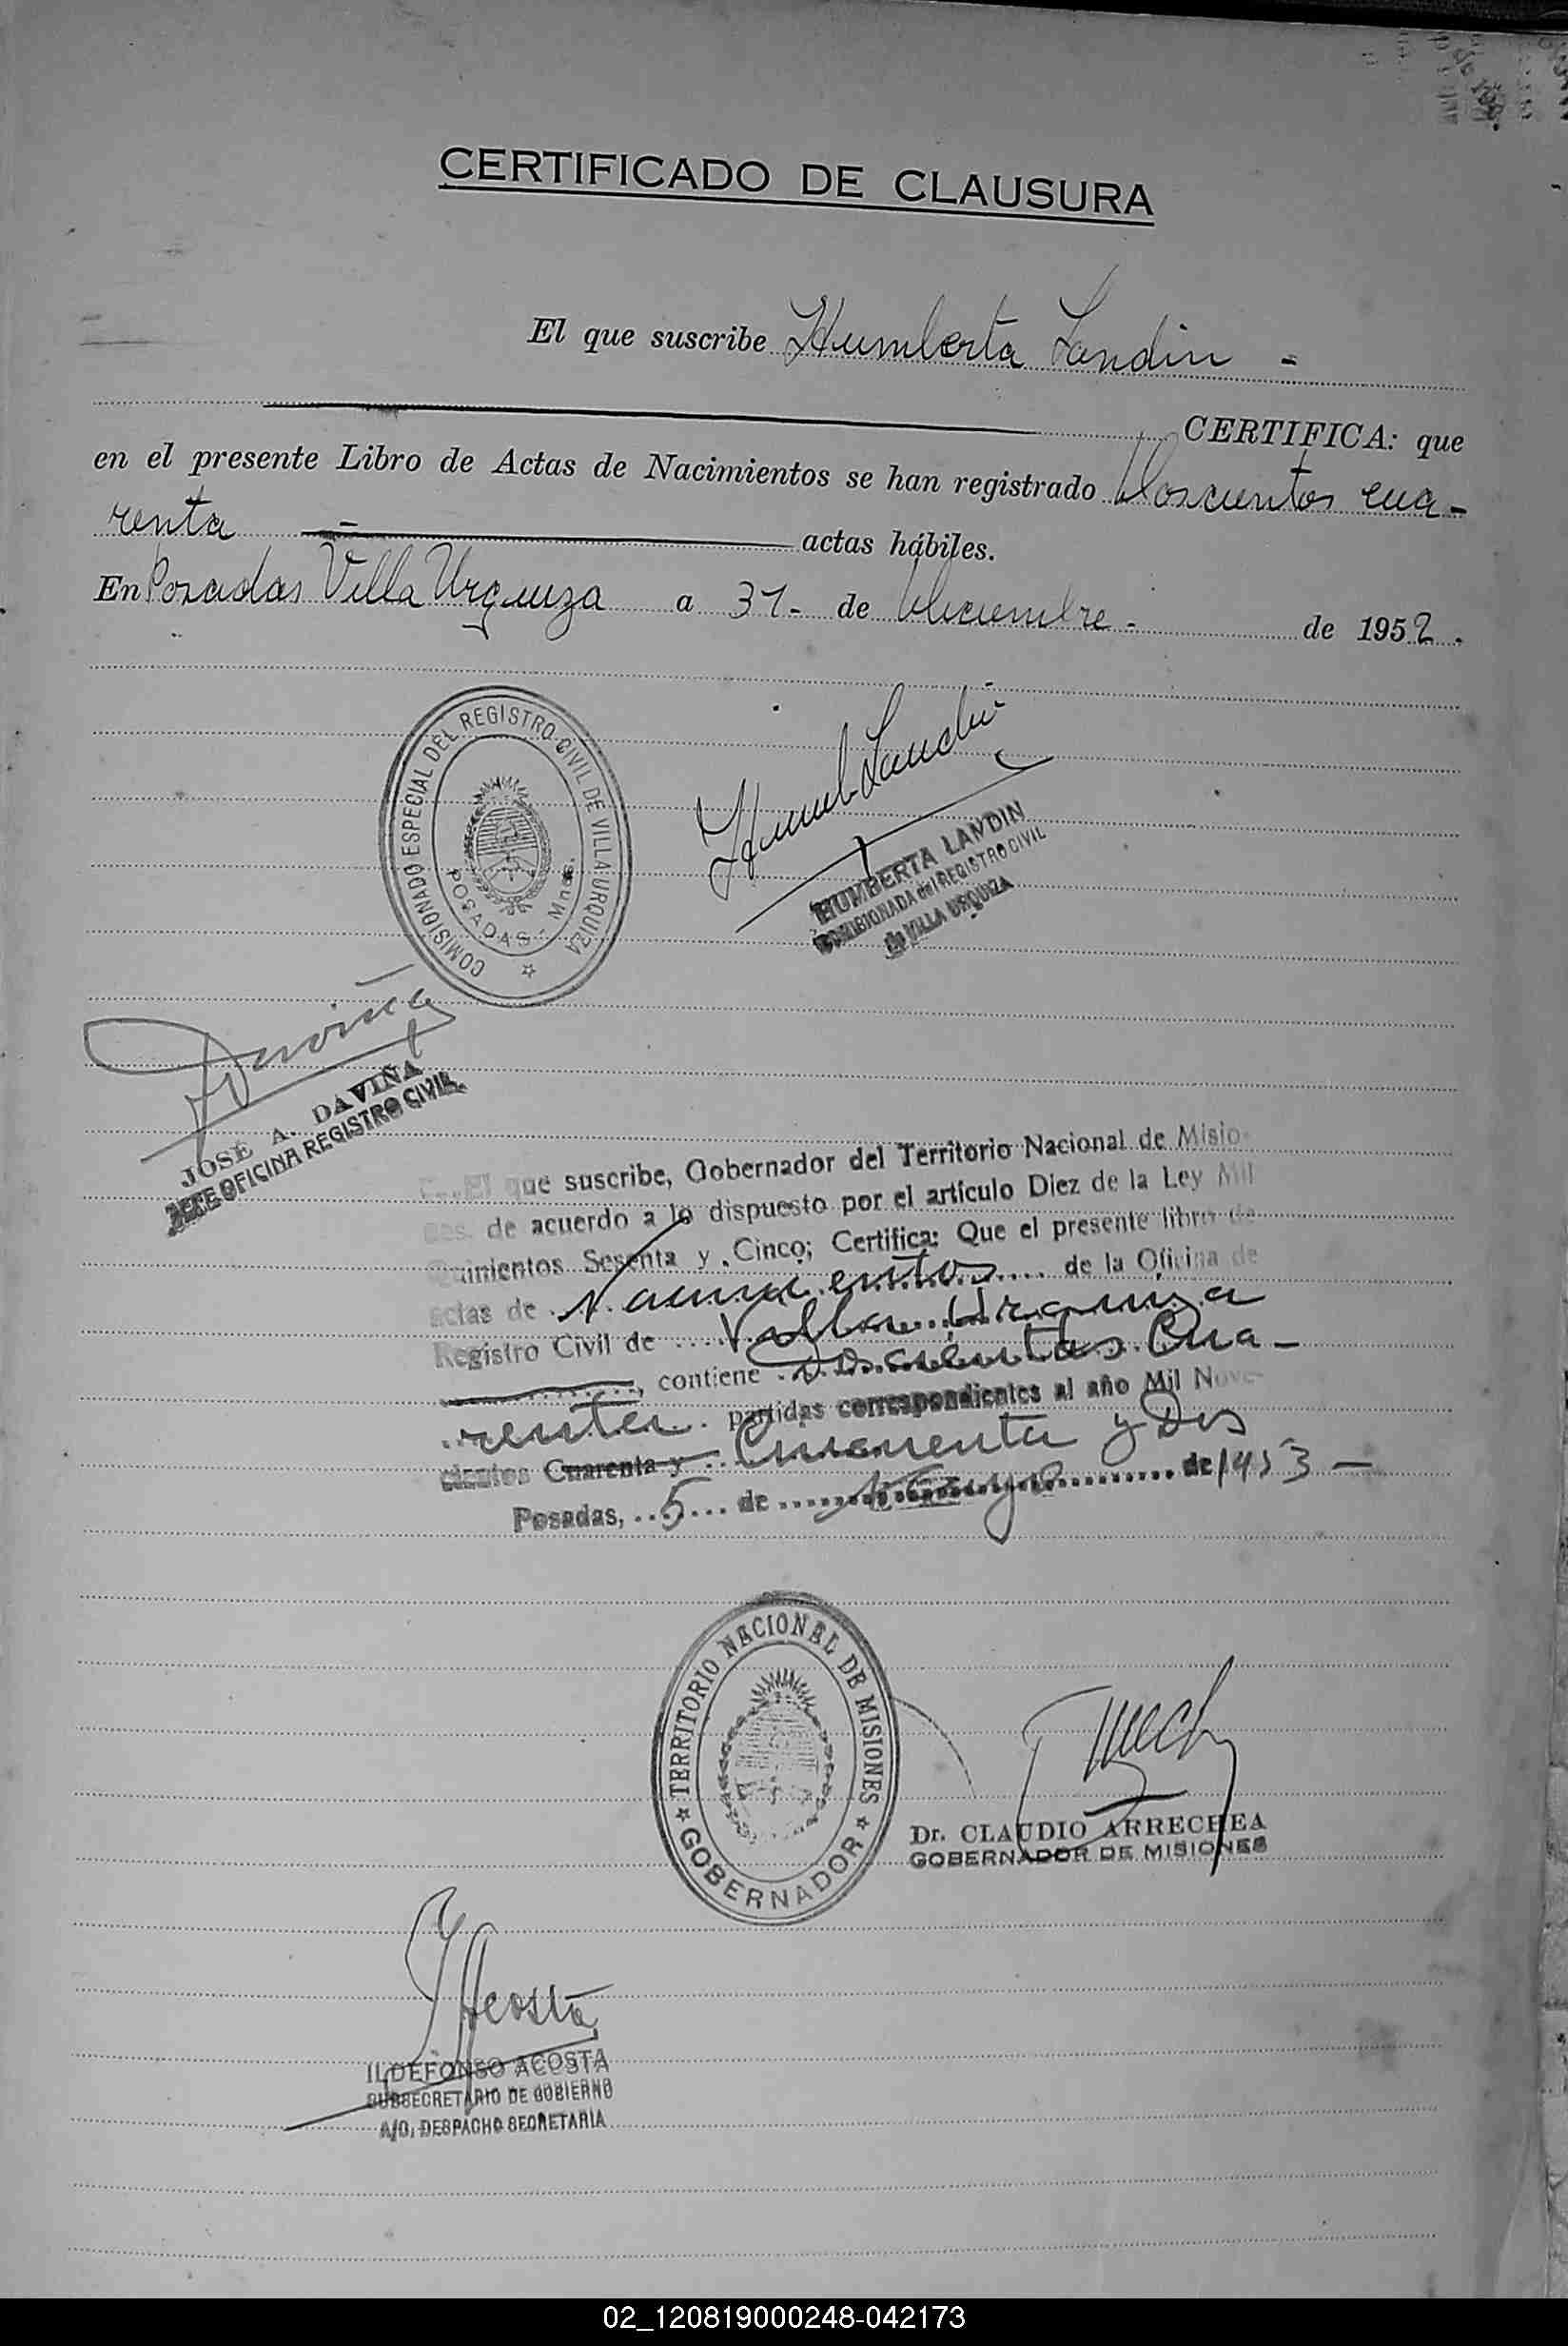 CERTIFICADO DE CLAUSURA
El que suscribe Humberta Landin -
CERTIFICA: que
en el presente Libro de Actas de Nacimientos se han registrado Doscientos cua-
renta actas hábiles.
En Posadas Villa Urquiza a 31- de Diciembre - de 1952.
COMISIONADO ESPECIAL DEL REGISTRO CIVIL DE VILLA URQUIZA
POSADAS - Mnes.
Humb Landin
HUMBERTA LANDIN
COMISIONADA del REGISTRO CIVIL
de VILLA URQUIZA
Daviña
JOSE A. DAVIÑA
JEFE OFICINA REGISTRO CIVIL
El que suscribe, Gobernador del Territorio Nacional de Misio-
nes, de acuerdo a lo dispuesto por el artículo Diez de la Ley Mil
Quinientos Sesenta y Cinco; Certifica: Que el presente libro de
actas de Nacimientos de la Oficina de
Registro Civil de Villa Urquiza
, contiene Doscientas Cua-
renta partidas correspondientes al año Mil Nove-
cientos Cuarenta y Cincuenta y Dos
Posadas, 5 de Mayo de 1953 -
TERRITORIO NACIONAL DE MISIONES
GOBERNADOR
Dr. CLAUDIO ARRECHEA
GOBERNADOR DE MISIONES
Acosta
ILDEFONSO ACOSTA
SUBSECRETARIO DE GOBIERNO
A/C. DESPACHO SECRETARIA
02_120819000248-042173